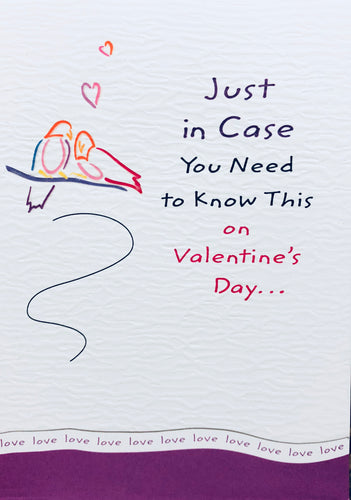 Just
in Case
You Need
to Know This
on
Valentine's
Day...
love love love love love love love love love love love